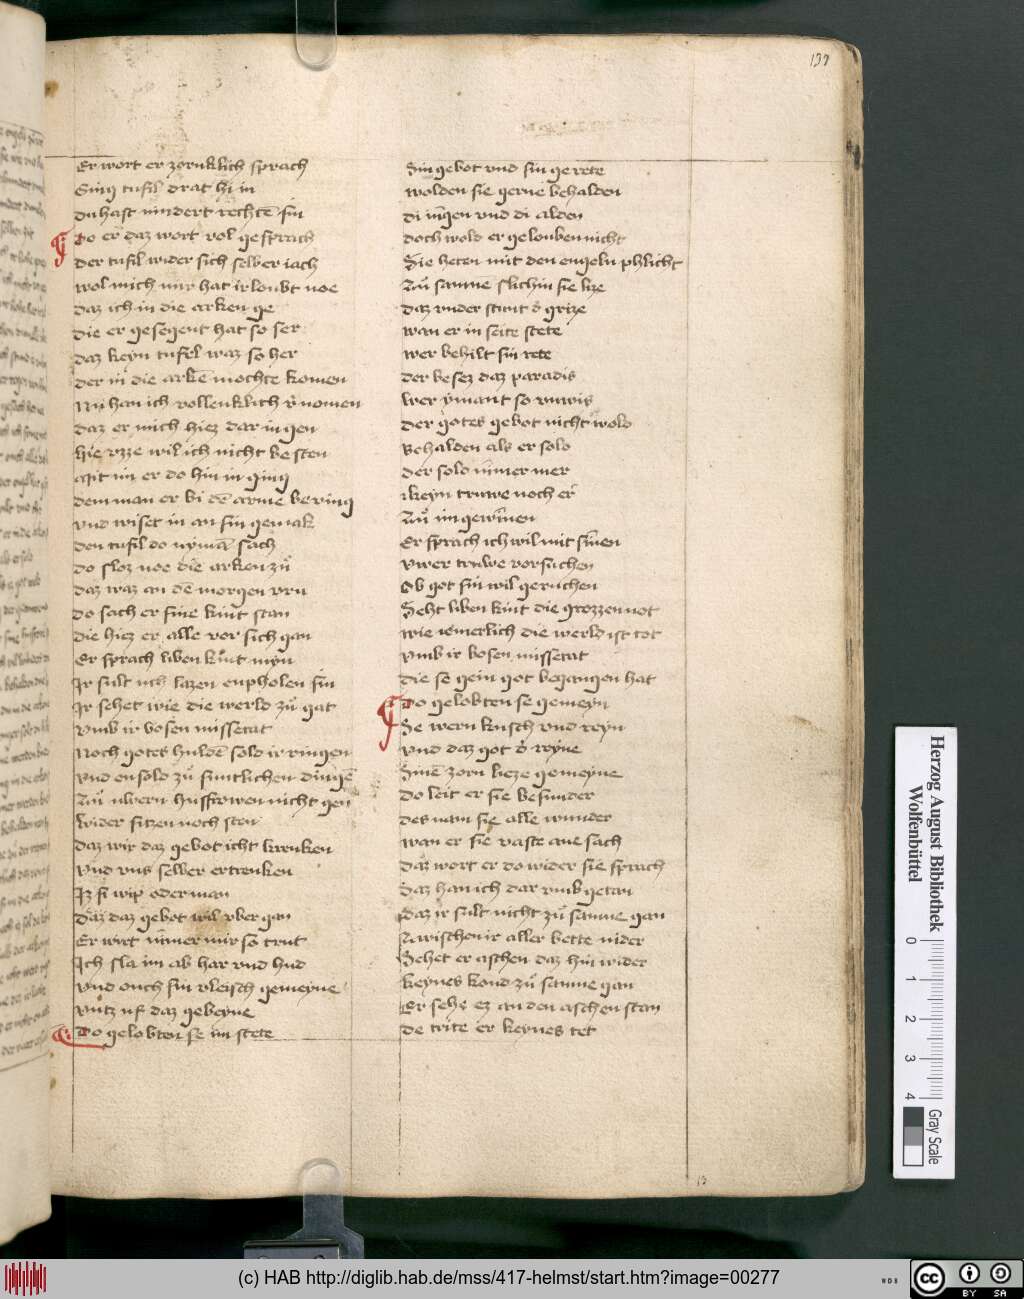 137
Er wort er zornklich sprach
Ging tufil drat hi in
du hast nindert rechtē sin
Do er daz wort vol gesprach
der tufil wider sich selber iach
wol mich mir hat irloubt noe
daz ich in die arken ge
die er gesegent hat so ser
daz keyn tufel waz so her
der in die arkē mochte komen
Nu han ich vollenklich v'nomen
daz er mich hiez dar in gen
hie vzze wil ich nicht besten
Mit im er do hin in ging
dem man er bi dē arme beving
vnd wiset in an sin gemak
den tufil do nymā sach
do sloz noe die arken zů
daz waz an dē morgen vru
do sach er sine kint stan
die hiez er alle vor sich gan
Er sprach liben kint myn
Ir sult uch lazen enpholen sin
Ir sehet wie die werld zů gat
vmb ir bosen missetat
Noch gotes huldē sold ir ringen
vnd en sold zů suntlichen dingē
Zů uwern husfrowen nicht gen
wider sitzen noch sten
daz wir daz gebot icht krenken
vnd vns selber ertrenken
Iz si wip oder man
daz daz gebot wil vber gan
Er wirt nimer mir so trut
Ich sla im ab har vnd hud
vnd ouch sin vleisch gemeyne
vntz uf daz gebeyne
Do gelobten se im stete
Sin gebot vnd sin gerete
wolden sie gerne behalden
di iungen vnd di alden
doch wold er gelouben nicht
Sie heten mit den engeln phlicht
Zů samne slichin sie lize
daz vnder stunt d' grize
wan er in seite stete
wer behilt sin rete
der besez daz paradis
wer ymant so vnwis
der gotes gebot nicht wold
behalden als er sold
der sold nimer mer
keyn truwe noch er
Zů im gewinnen
Er sprach ich wil mit sinnen
vwer truwe vorsuchen
Ob got sin wil geruchen
Seht liben kint die grozzen not
wie iemerlich die werld ist tot
vmb ir bosen missetat
die se gein got begangen hat
Do gelobten se gemeyn
Se wern kusch vnd reyn
vnd daz got d' reyne
Sinē zorn lieze gemeyne
do leit er sie besunder
des nam sie alle wunder
wan er sie vaste ane sach
daz wort er do wider sie sprach
daz han ich dar vmb getan
daz ir sult nicht zů samne gan
Zwischen ir aller bette nider
Sehet er aschen daz hin wider
keynes kond zů samne gan
Er sehe ez an den aschen stan
de trite er keynes tet
13
Herzog August Bibliothek
Wolfenbüttel
0 1 2 3 4
Gray Scale
(c) HAB http://diglib.hab.de/mss/417-helmst/start.htm?image=00277
WDB
cc BY SA